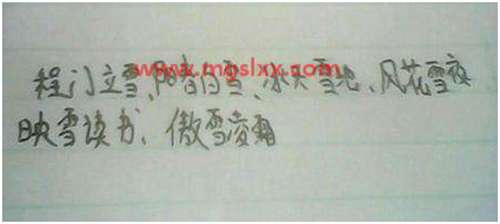 程门立雪、阳春白雪、冰天雪地、风花雪夜
www.mgslxx.com
映雪读书、傲雪凌霜